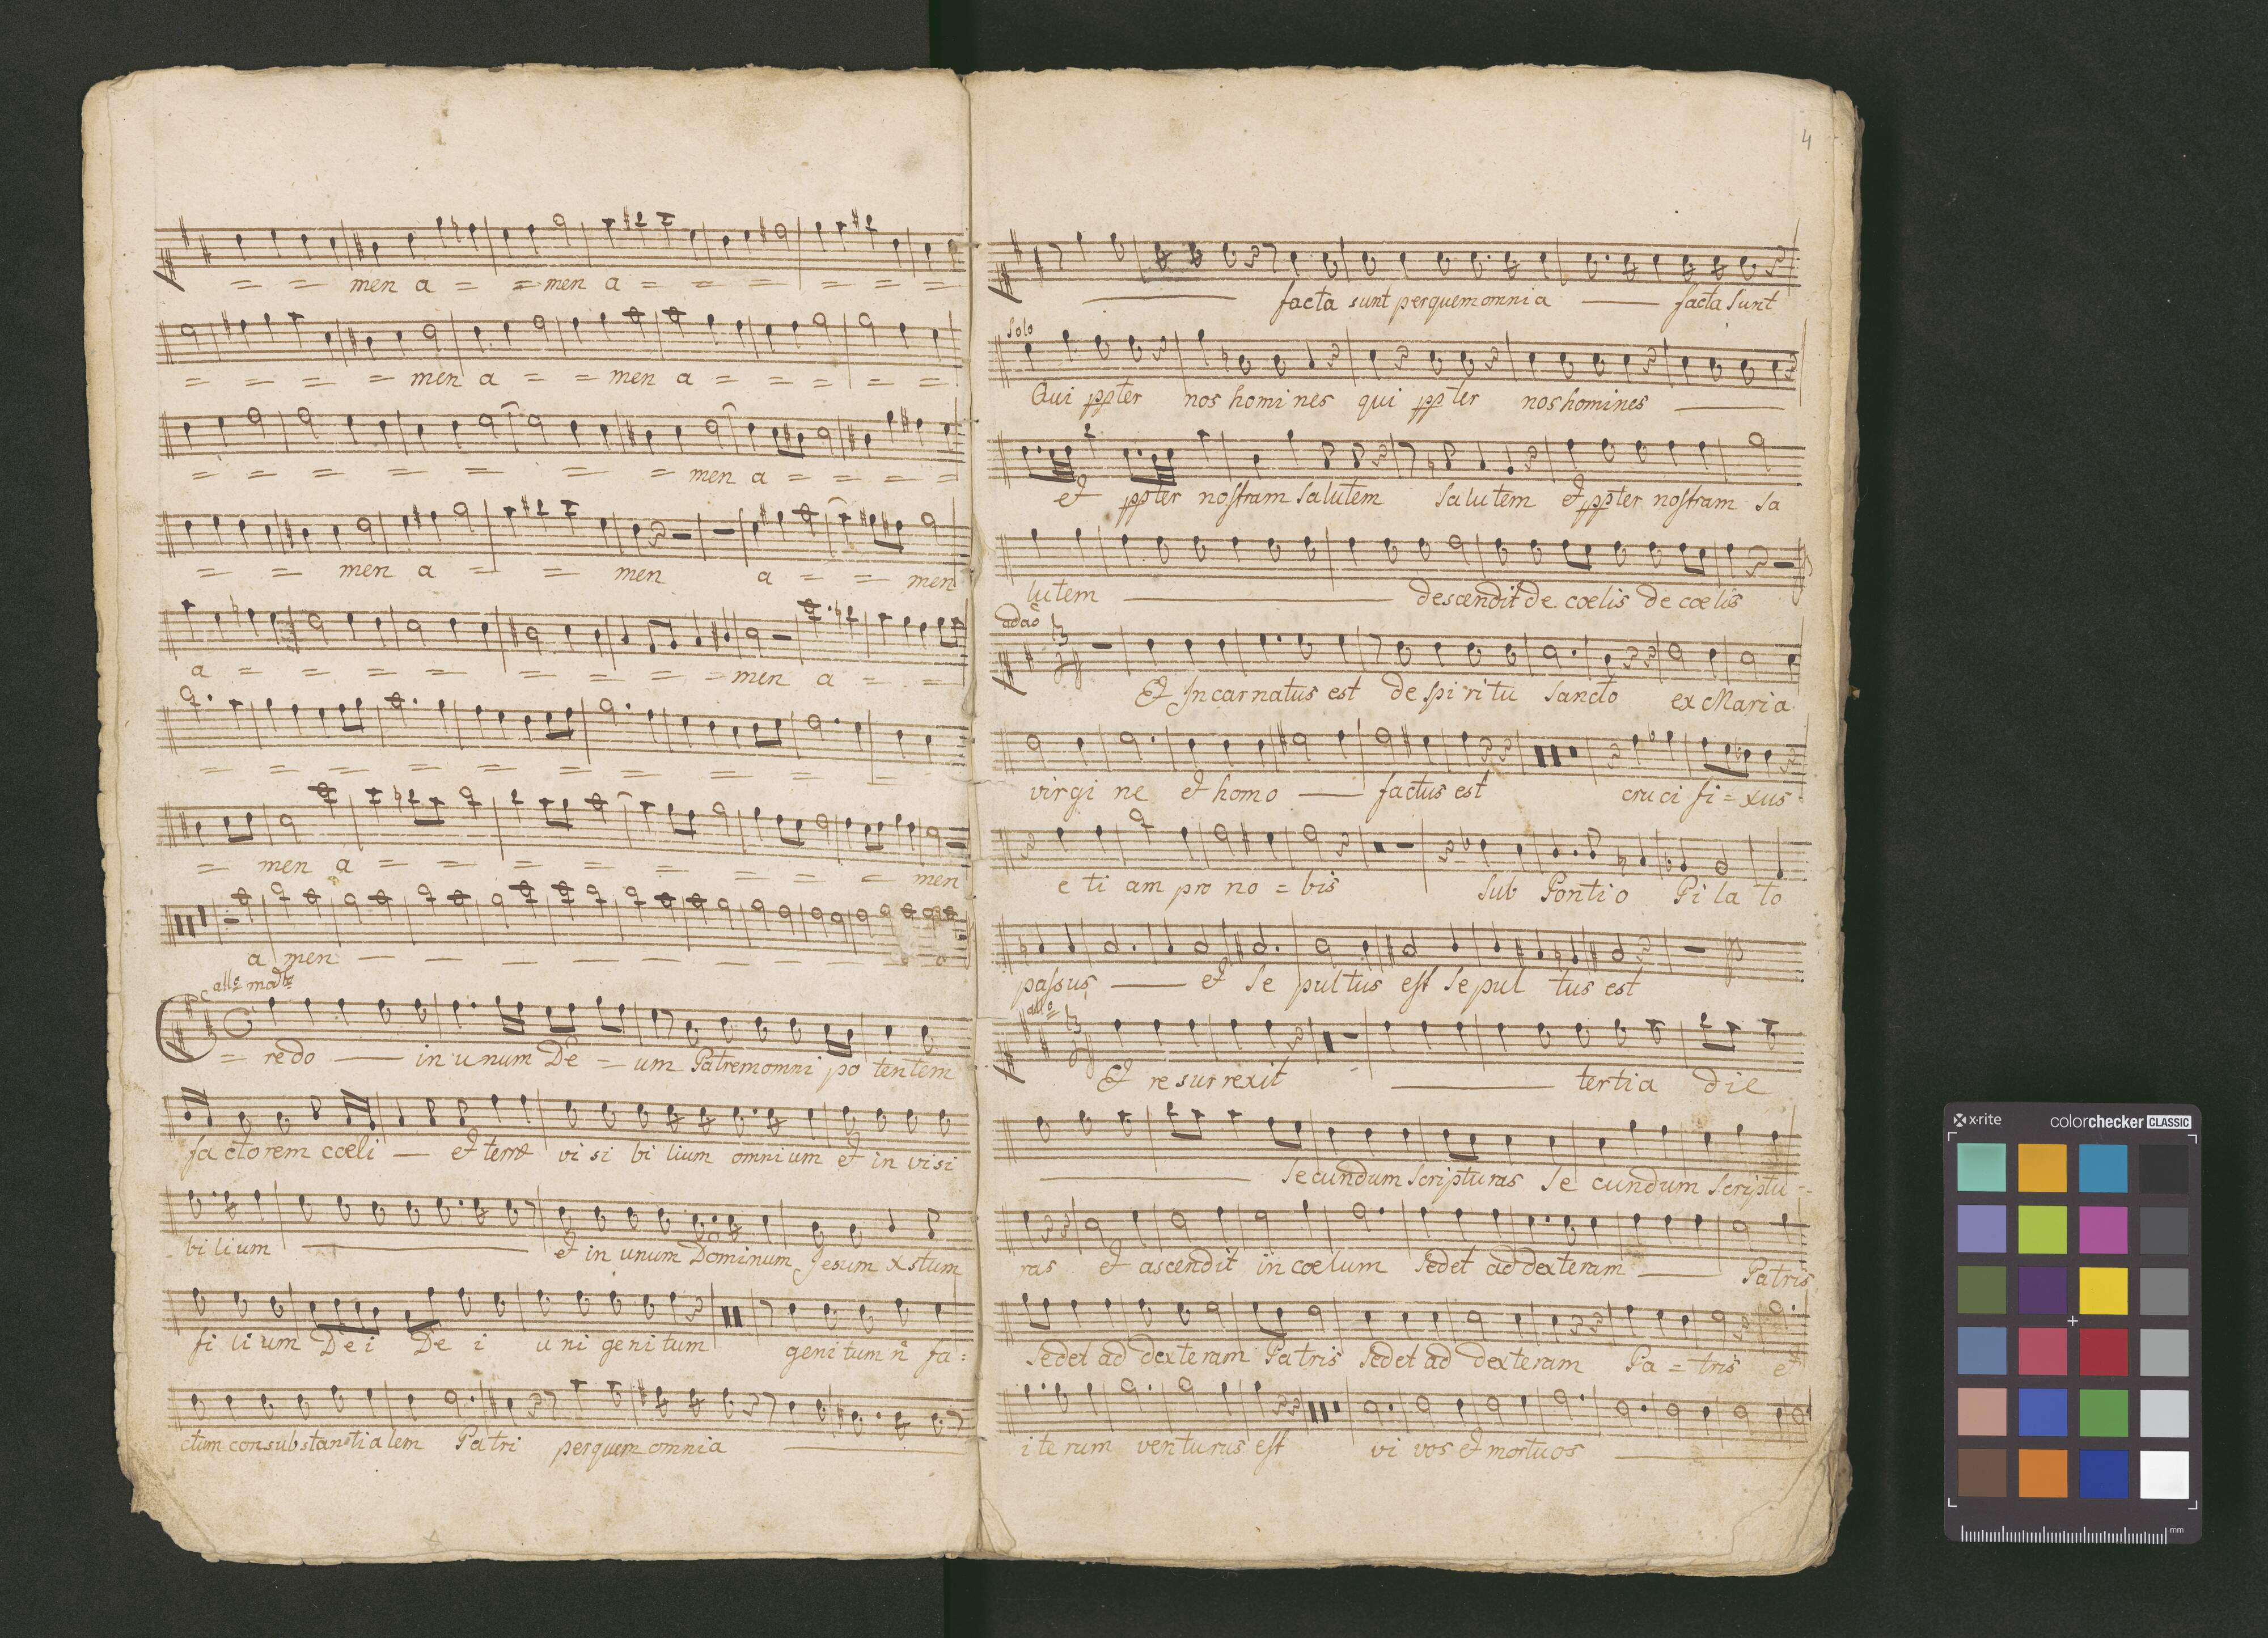 = = men a = = men a = = = = = =
= = = = men a = = men a = = = = =
= = = = = = = men a = = = =
= = men a = = men a = = men
a = = = = = = = = men a = =
= = = = = = = = = =
= men a = = = = = = = = men
a men — — — — — — — —
allo modto
= redo — in unum De = um Patrem omni po tentem
fa ctorem cœli — et terræ vi si bi lium omnium et in visi
bi lium — et in unum Dominum Jesum xstum
fi li um De i De i u ni geni tum genitum n fa =
ctum consubstantialem Patri per quem omnia —
4
— facta sunt per quem omnia — facta sunt
Solo
Qui ppter nos homines qui ppter nos homines —
et ppter nostram salutem salutem et ppter nostram sa
lutem — descendit de cœlis de cœlis
adaô
Et Incarnatus est de spiritu sancto ex Maria
virgi ne et homo — factus est cru ci fi = xus
e ti am pro no = bis sub Pontio Pi la to
passus — et se pultus est sepul tus est
allo
Et resurrexit — tertia die
— secundum scripturas se cundum scriptu =
ras et ascendit in cœlum sedet ad dexteram — Patris
sedet ad dexteram Patris sedet ad dexteram Pa = tris et
ite rum venturus est vi vos et mortuos —
x-rite colorchecker CLASSIC
mm